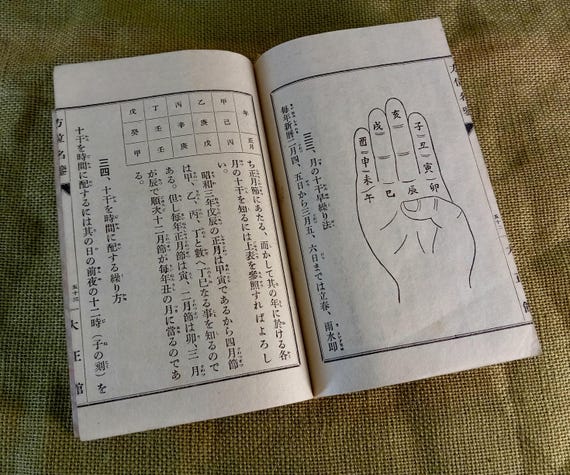 子
丑
寅
卯
亥
辰
戌
巳
酉
申
未
午
三三、月の十干早繰り法
毎年新暦二月四、五日から三月五、六日までは立春、雨水卽
年 正月
甲 己 丙
乙 庚 戊
丙 辛 庚
丁 壬 壬
戊 癸 甲
ち正月節にあたる、而かして其の年に於ける各
月の十干を知るには上表を參照すればよろし
い。
昭和三年戊辰の正月は甲寅であるから四月節
は甲、乙、丙、丁と數へ丁巳なる事を知るので
ある。但し毎年正月節は寅、二月節は卯、三月
が辰で順次十二月節が毎年丑の月に當るのであ
る。
三四、十干を時間に配する繰り方
十干を時間に配するには其の日の前夜の十二時（子の刻）を
五十三